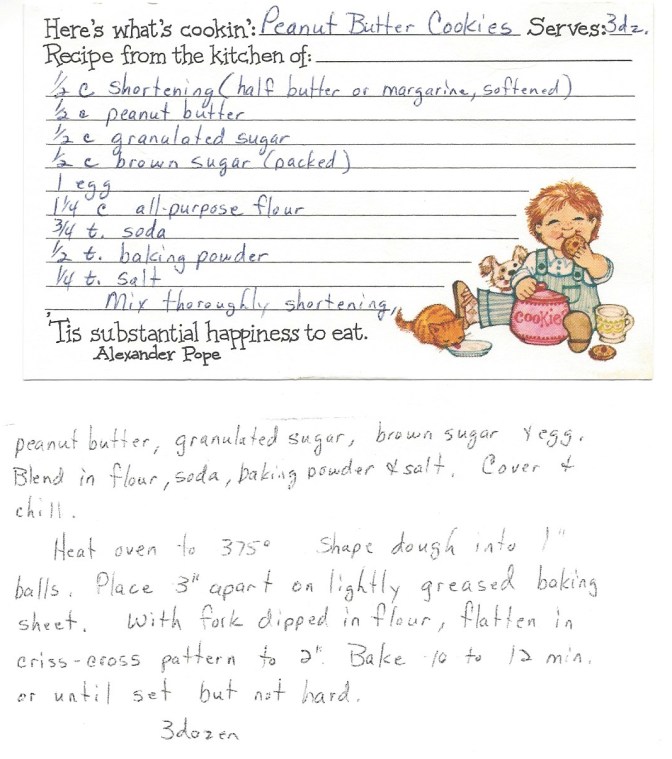 Here's what's cookin': Peanut Butter Cookies Serves: 3dz.
Recipe from the kitchen of:
1/2 c shortening (half butter or margarine, softened)
1/2 c peanut butter
1/2 c granulated sugar
1/2 c brown sugar (packed)
1 egg
1 1/4 c all-purpose flour
3/4 t. soda
1/2 t. baking powder
1/4 t. salt
Mix thoroughly shortening,
'Tis substantial happiness to eat.
Alexander Pope
cookie
peanut butter, granulated sugar, brown sugar & egg.
Blend in flour, soda, baking powder & salt. Cover &
chill.
Heat oven to 375° Shape dough into 1"
balls. Place 3" apart on lightly greased baking
sheet. With fork dipped in flour, flatten in
criss-cross pattern to 2". Bake 10 to 12 min.
or until set but not hard.
3dozen